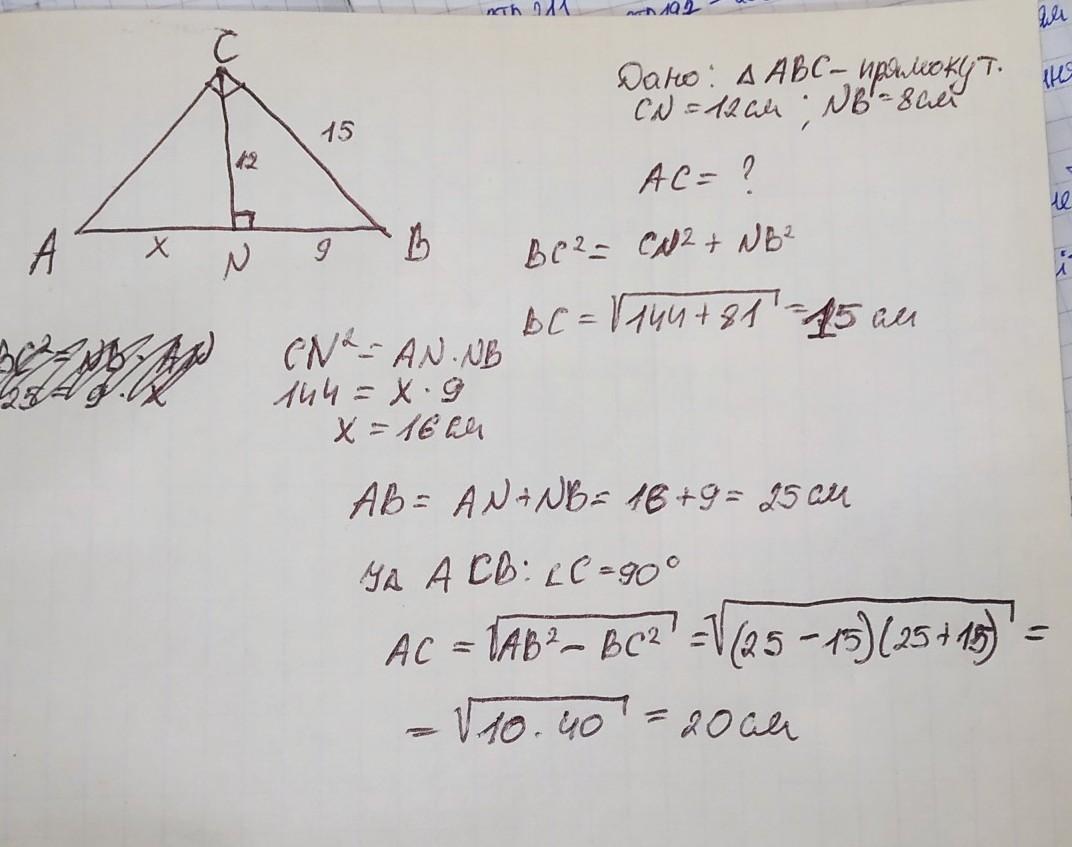 C
15
12
A
x
N
9
B
Дано: △ ABC – прямокут.
CN = 12 см ; NB = 8 см
AC = ?
BC² = CN² + NB²
BC = √144 + 81 = 15 см
BC² = NB · AN
25 = 9 · x
CN² = AN · NB
144 = x · 9
x = 16 см
AB = AN + NB = 16 + 9 = 25 см
У △ ACB: ∠C = 90°
AC = √AB² – BC² = √(25 – 15)(25 + 15) =
= √10 · 40 = 20 см